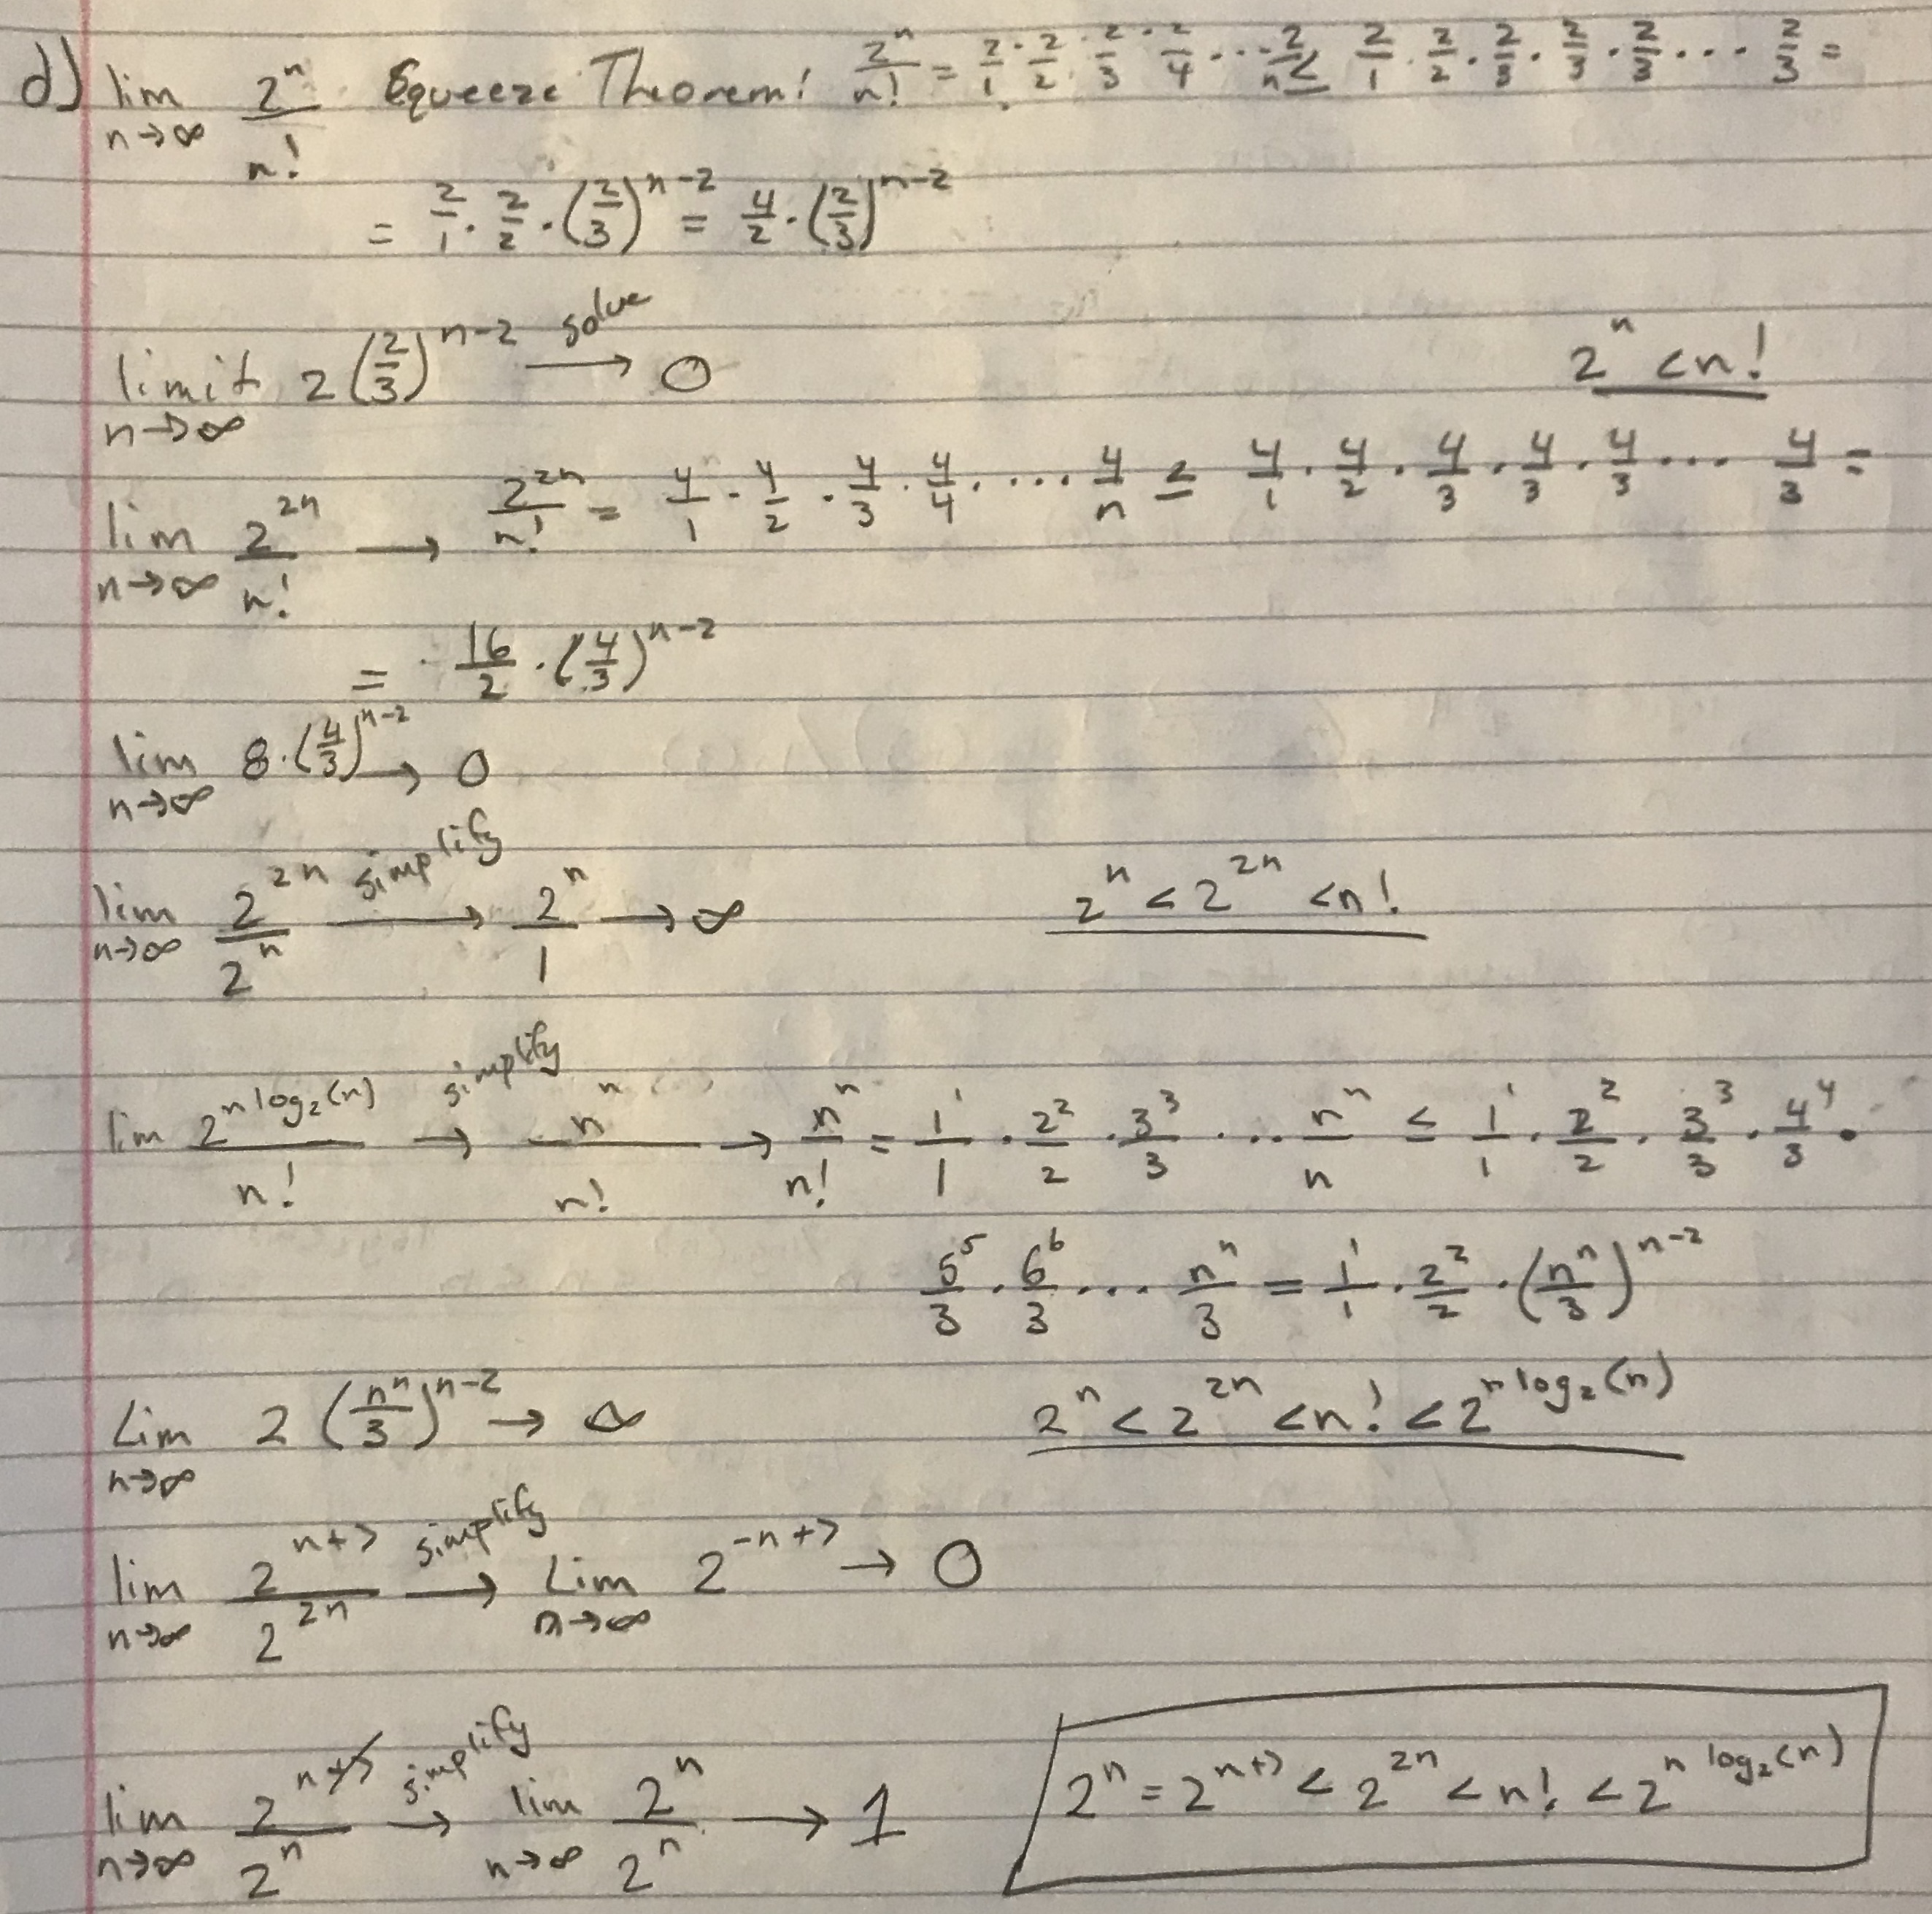 d) lim n→∞ 2^n / n! Squeeze Theorem! 2^n/n! = 2/1 · 2/2 · 2/3 · 2/4 ... 2/n ≤ 2/1 · 2/2 · 2/3 · 2/3 · 2/3 ... 2/3 =
= 2/1 · 2/2 · (2/3)^(n-2) = 4/2 · (2/3)^(n-2)
limit n→∞ 2 (2/3)^(n-2) solve → 0
2^n < n!
lim n→∞ 2^(2n) / n! → 2^(2n)/n! = 4/1 · 4/2 · 4/3 · 4/4 · ... 4/n ≤ 4/1 · 4/2 · 4/3 · 4/3 · 4/3 ... 4/3 =
= 16/2 · (4/3)^(n-2)
lim n→∞ 8 · (4/3)^(n-2) → 0
lim n→∞ 2^(2n) / 2^n simplify → 2^n / 1 → ∞ 2^n < 2^(2n) < n!
lim 2^(n log₂(n)) / n! simplify → n^n / n! → n^n/n! = 1^1/1 · 2^2/2 · 3^3/3 ... n^n/n ≤ 1^1/1 · 2^2/2 · 3^3/3 · 4^4/3 ·
5^5/3 · 6^6/3 ... n^n/3 = 1^1/1 · 2^2/2 · (n^n/3)^(n-2)
Lim n→∞ 2 (n^n/3)^(n-2) → ∞ 2^n < 2^(2n) < n! < 2^(n log₂(n))
lim n→∞ 2^(n+7) / 2^(2n) simplify → Lim n→∞ 2^(-n+7) → 0
lim n→∞ 2^(n+7) / 2^n simplify → lim n→∞ 2^n / 2^n → 1 2^n = 2^(n+7) < 2^(2n) < n! < 2^(n log₂(n))